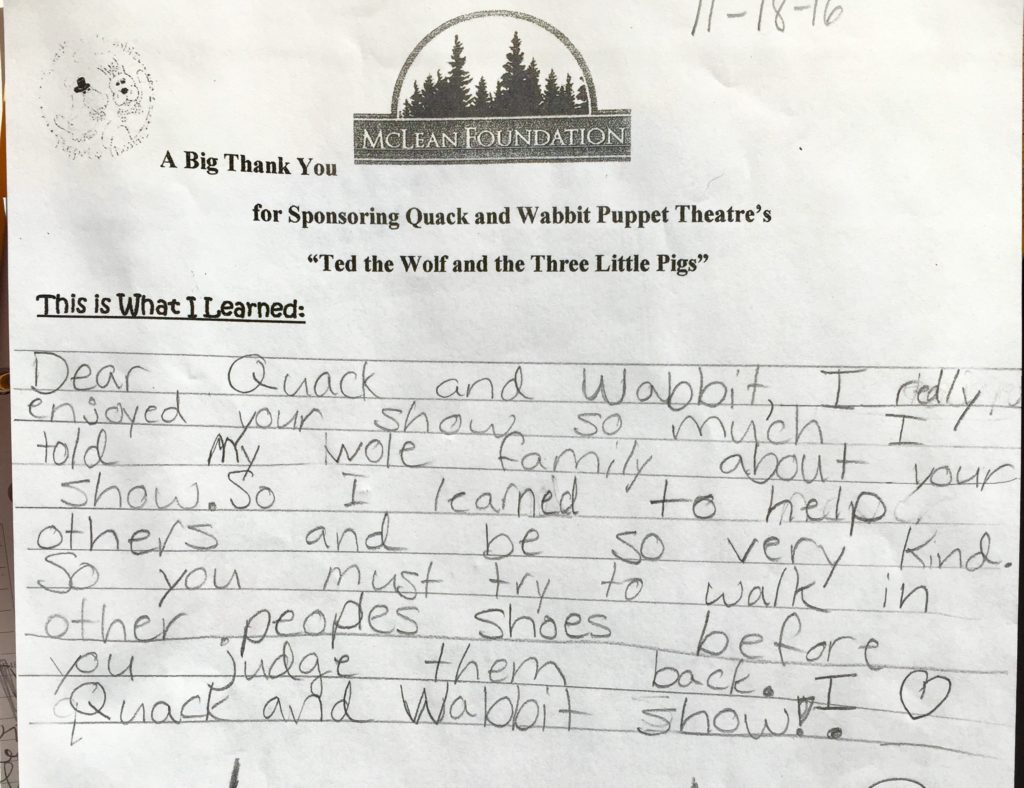 11-18-16
McLEAN FOUNDATION
A Big Thank You
for Sponsoring Quack and Wabbit Puppet Theatre's
"Ted the Wolf and the Three Little Pigs"
This is What I Learned:
Dear Quack and Wabbit, I really
enjoyed your show so much I
told My wole family about your
show. So I learned to help
others and be so very kind.
So you must try to walk in
other peoples shoes before
you judge them back. I ♡
Quack and Wabbit show!.